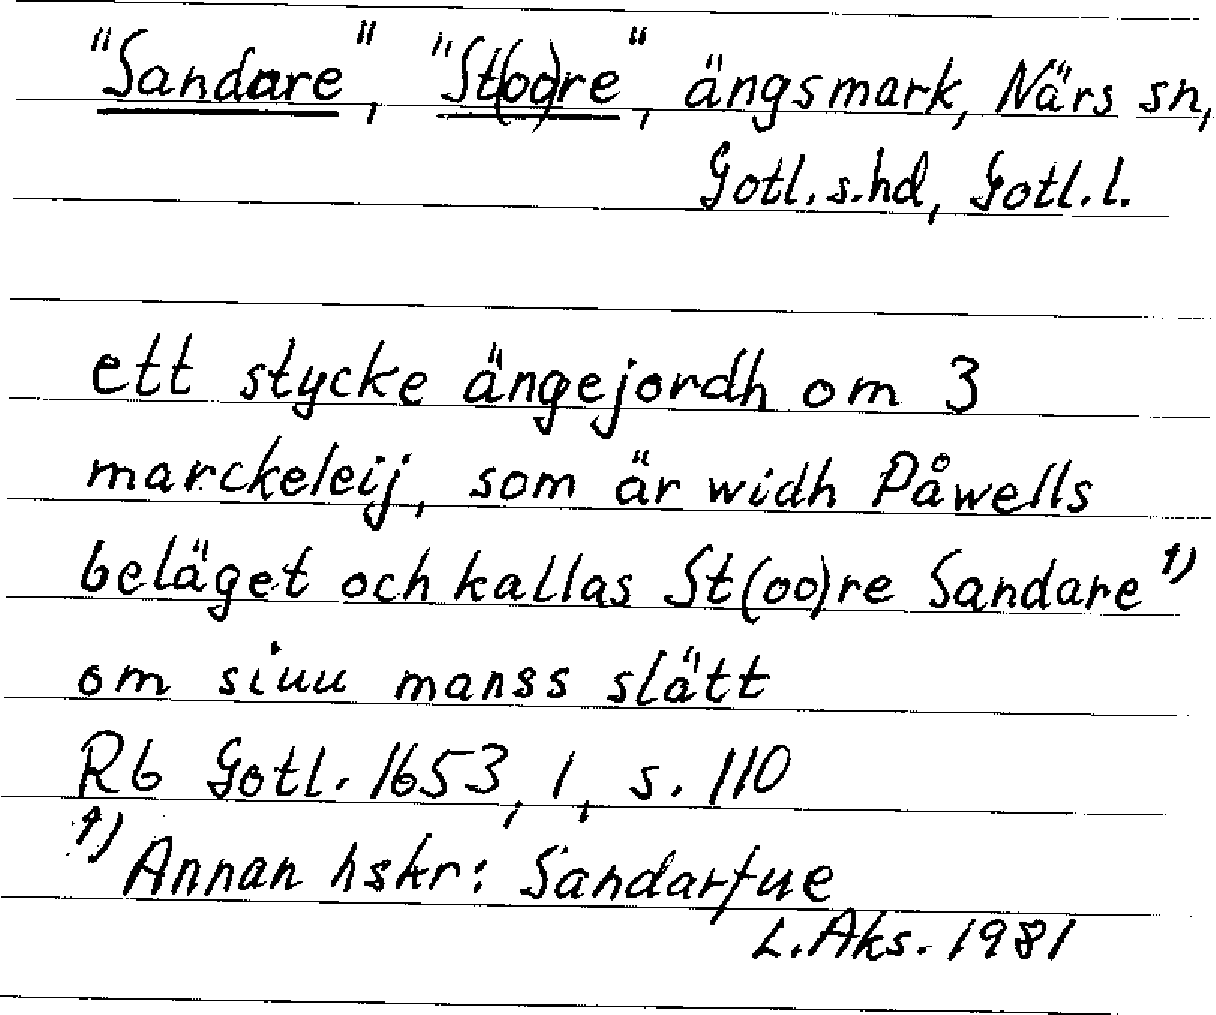 "Sandare", "St(oo)re", ängsmark, Närs sn,
Gotl. s. hd, Gotl. l.
ett stycke ängejordh om 3
marckeleij, som är widh Påwells
beläget och kallas St(oo)re Sandare 1)
om siuu manss slätt
Rb Gotl. 1653, 1, s. 110
1) Annan hskr: Sandarfue
L. Aks. 1981